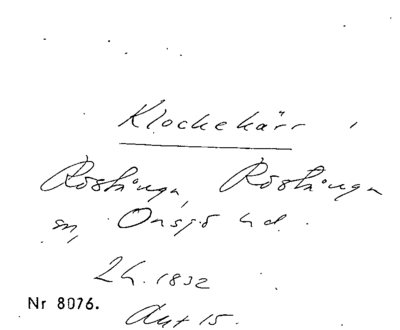 Klockekärr
Röstånga, Röstånga
sn, Onsjö hd.
2h. 1832
Nr 8076.
Akt 15.